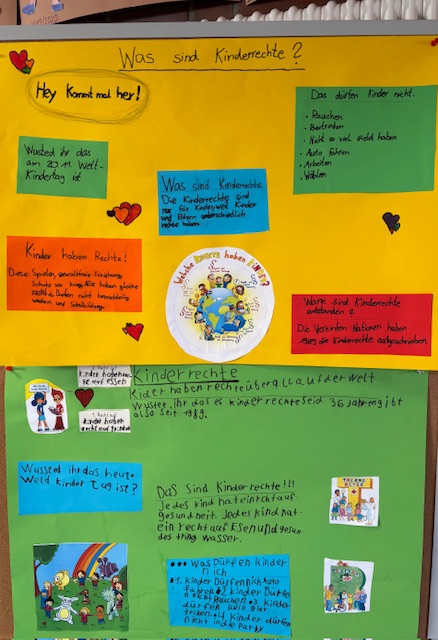 Was sind Kinderrechte?
Hey Kommt mal her!
Das dürfen Kinder nicht.
• Rauchen
• Biertrinken
• Nicht so viel Geld haben
• Auto fahren
• Arbeiten
• Wählen
Wusted ihr das
am 20.11 Welt-
Kindertag ist
Was sind Kinderrechte
Die Kinderrechte sind
nur für Kinder, weil Kinder
und Eltern unterschiedlich
rechte haben.
Kinder haben Rechte!
Diese: Spielen, gewaltfreie Erziehung
Schutz vor krieg, Alle haben gleiche
rechte, Dürfen nicht benachteilig
werden und Schulbildung.
Welche Rechte haben KINDER?
Wann sind Kinderrechte
entstanden?
Die Vereinten Nationen haben
1989 die Kinderrechte aufgeschrieben.
kinder haben
auf essen
kinder haben
recht auf trinken
Kinderrechte
Kider haben rechte überall auf der Welt
Wustet ihr das es kinderrechte seid 36 jahren gibt
also seit 1989.
Wussted ihr das heute
Weld kinder tag ist?
Das Sind Kinderrechte!!!
Jedes kind hat ein recht auf
gesundheit. Jedes kind hat
ein recht auf Esen und gesun-
des tring wasser.
••• Was Dürfen Kinder
nich
•1. kinder Dürfen nich Auto
fahren •2 kinder Dürfen
nicht Rauchen •3 kinder
dürfen kein Bier
trinken •4 kinder dürfen
nicht in die Party